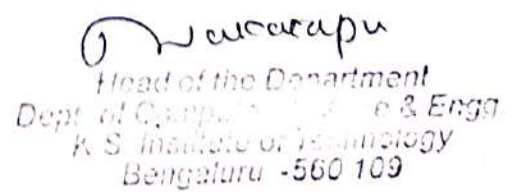 Head of the Department
Dept. of & Engg.
K. S. Institute of Technology
Bengaluru -560 109